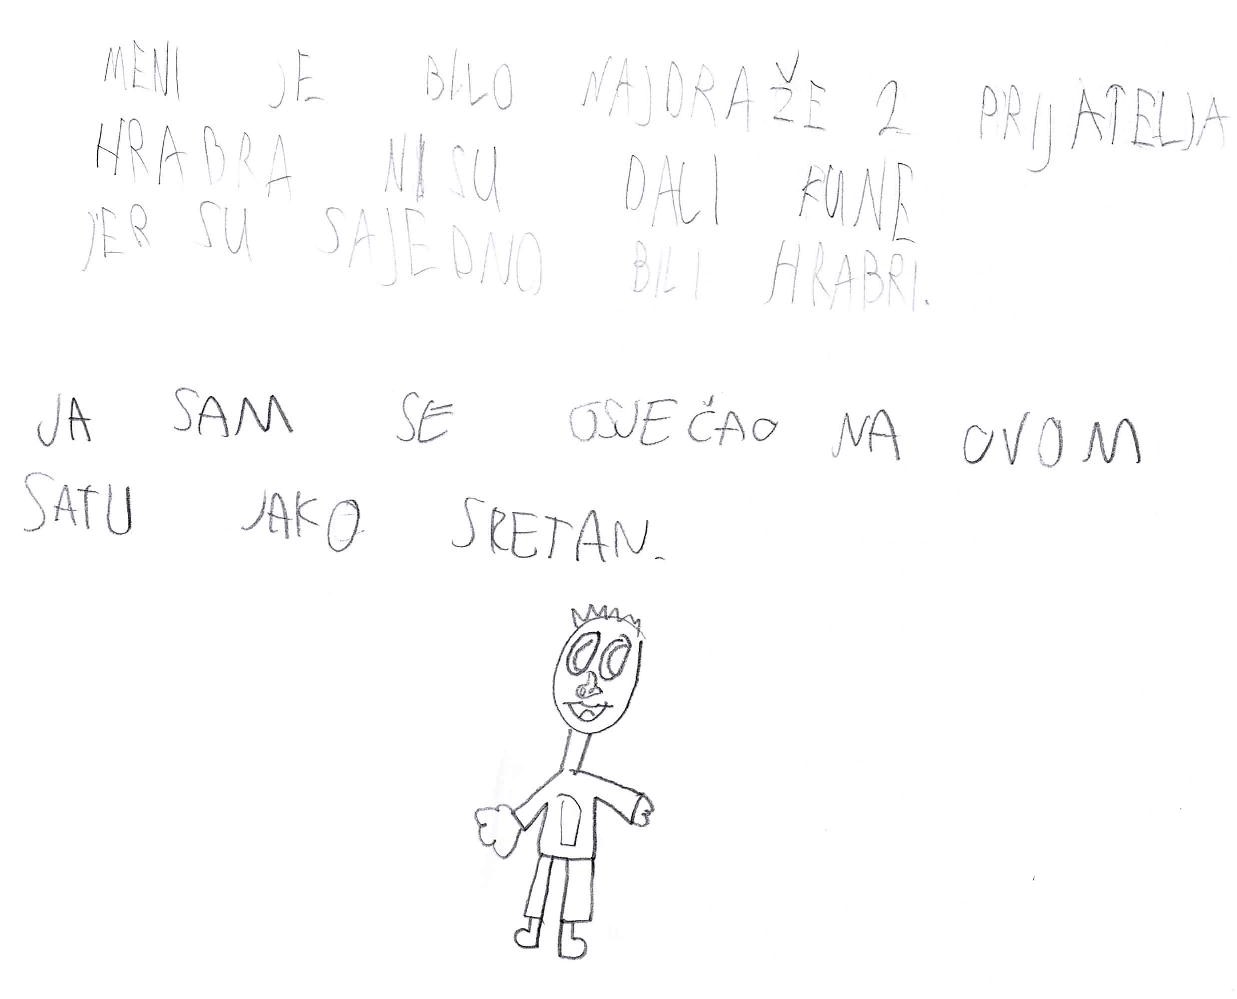 MENI JE BILO NAJDRAŽE 2 PRIJATELJA
HRABRA NISU DALI KUNE
JER SU SAJEDNO BILI HRABRI.
JA SAM SE OSJEČAO NA OVOM
SATU JAKO SRETAN.